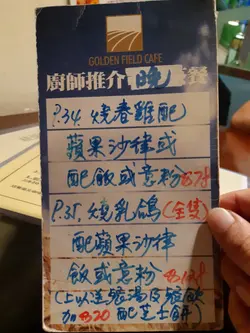 GOLDEN FIELD CAFE
廚師推介晚餐
P.34. 燒春雞配
蘋果沙律或
配飯或意粉 $78
P.35. 燒乳鴿(全隻)
配蘋果沙律
飯或意粉
(以上送餐湯及餐飲
加$20 配芝士餅)